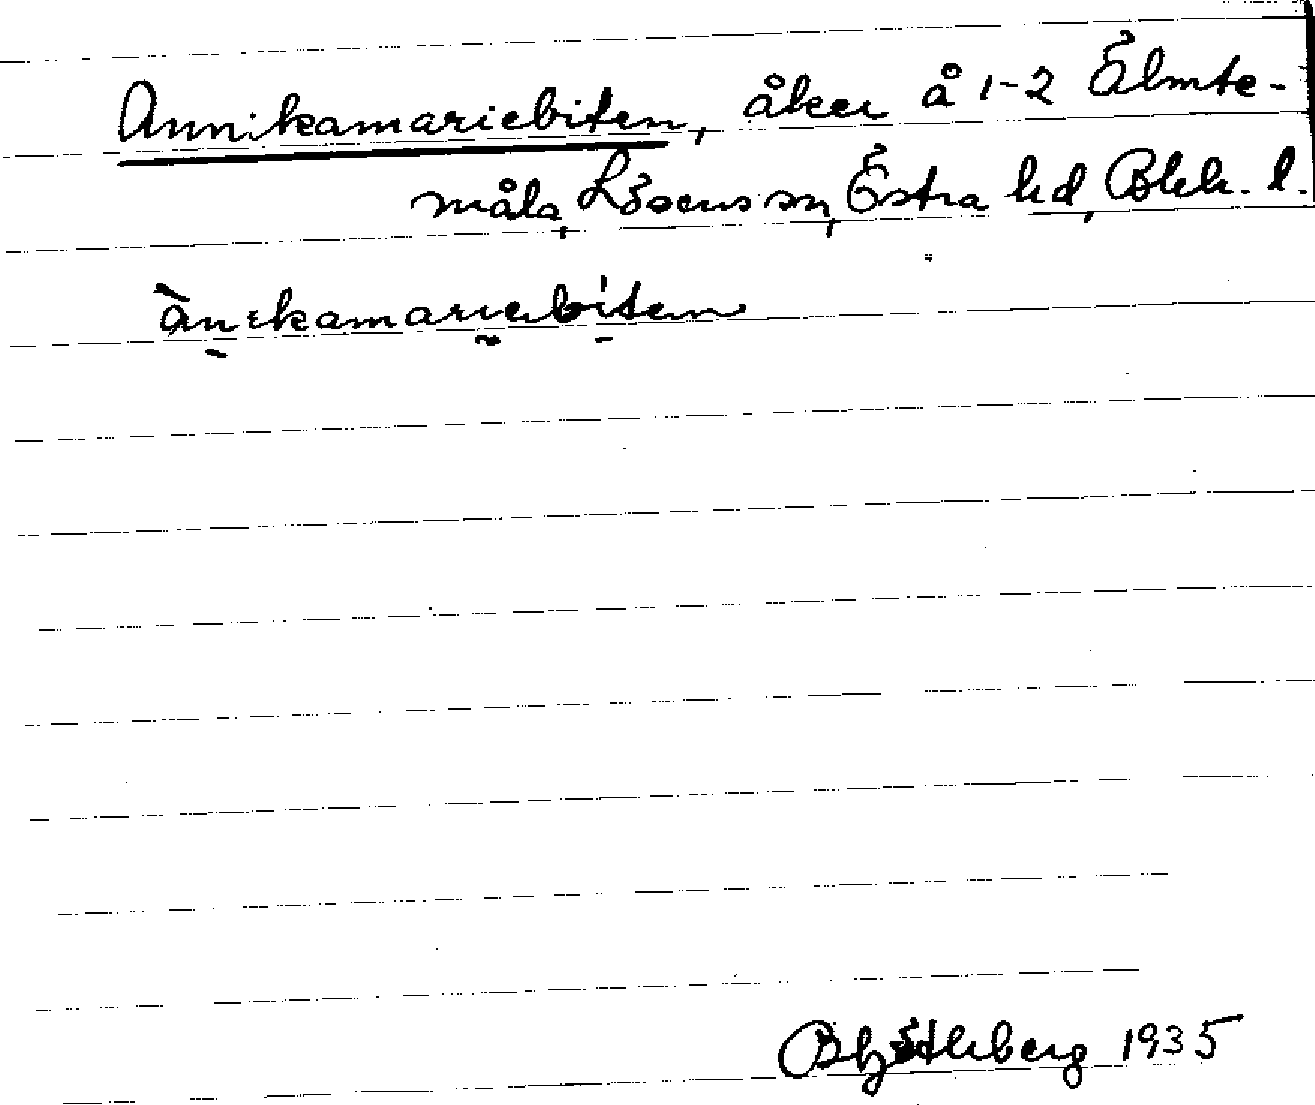 Annikamariebiten, åker å 1-2 Ölmte-
måla, Lösens sn, Östra hd, Blek. l.
ànikamariebiten
1935